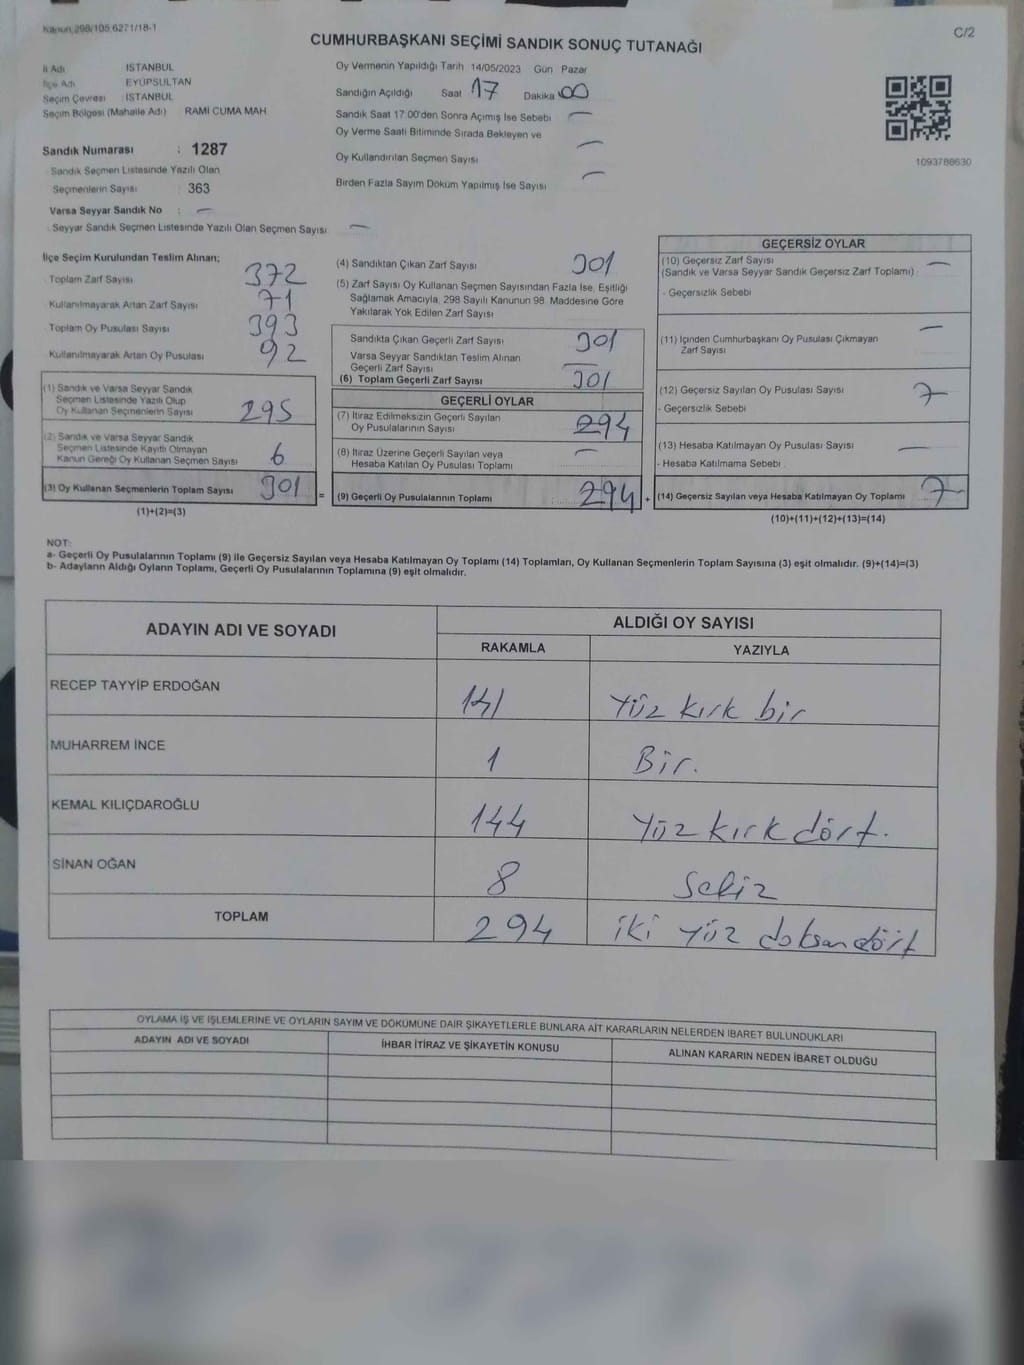 Kanun 298/105 6271/18-1
C/2
CUMHURBAŞKANI SEÇİMİ SANDIK SONUÇ TUTANAĞI
İl Adı İSTANBUL
İlçe Adı EYÜPSULTAN
Seçim Çevresi : İSTANBUL
Seçim Bölgesi (Mahalle Adı) RAMİ CUMA MAH
Sandık Numarası : 1287
Sandık Seçmen Listesinde Yazılı Olan
Seçmenlerin Sayısı : 363
Varsa Seyyar Sandık No : —
Seyyar Sandık Seçmen Listesinde Yazılı Olan Seçmen Sayısı —
Oy Vermenin Yapıldığı Tarih 14/05/2023 Gün Pazar
Sandığın Açıldığı Saat 17 Dakika 00
Sandık Saat 17 00'den Sonra Açımış İse Sebebi —
Oy Verme Saati Bitiminde Sırada Bekleyen ve
Oy Kullandırılan Seçmen Sayısı —
Birden Fazla Sayım Döküm Yapılmış İse Sayısı —
1093788630
İlçe Seçim Kurulundan Teslim Alınan;
Toplam Zarf Sayısı 372
Kullanılmayarak Artan Zarf Sayısı 71
Toplam Oy Pusulası Sayısı 393
Kullanılmayarak Artan Oy Pusulası 92
(1) Sandık ve Varsa Seyyar Sandık
Seçmen Listesinde Yazılı Olup
Oy Kullanan Seçmenlerin Sayısı 295
(2) Sandık ve Varsa Seyyar Sandık
Seçmen Listesinde Kayıtlı Olmayan
Kanun Gereği Oy Kullanan Seçmen Sayısı 6
(3) Oy Kullanan Seçmenlerin Toplam Sayısı 301 =
(1)+(2)=(3)
(4) Sandıktan Çıkan Zarf Sayısı 301
(5) Zarf Sayısı Oy Kullanan Seçmen Sayısından Fazla İse, Eşitliği
Sağlamak Amacıyla, 298 Sayılı Kanunun 98. Maddesine Göre
Yakılarak Yok Edilen Zarf Sayısı
Sandıkta Çıkan Geçerli Zarf Sayısı 301
Varsa Seyyar Sandıktan Teslim Alınan
Geçerli Zarf Sayısı —
(6) Toplam Geçerli Zarf Sayısı 301
GEÇERLİ OYLAR
(7) İtiraz Edilmeksizin Geçerli Sayılan
Oy Pusulalarının Sayısı 294
(8) İtiraz Üzerine Geçerli Sayılan veya
Hesaba Katılan Oy Pusulası Toplamı —
(9) Geçerli Oy Pusulalarının Toplamı 294 +
GEÇERSİZ OYLAR
(10) Geçersiz Zarf Sayısı —
(Sandık ve Varsa Seyyar Sandık Geçersiz Zarf Toplamı)
- Geçersizlik Sebebi
(11) İçinden Cumhurbaşkanı Oy Pusulası Çıkmayan
Zarf Sayısı —
(12) Geçersiz Sayılan Oy Pusulası Sayısı 7
- Geçersizlik Sebebi
(13) Hesaba Katılmayan Oy Pusulası Sayısı —
- Hesaba Katılmama Sebebi
(14) Geçersiz Sayılan veya Hesaba Katılmayan Oy Toplamı 7
(10)+(11)+(12)+(13)=(14)
NOT:
a- Geçerli Oy Pusulalarının Toplamı (9) ile Geçersiz Sayılan veya Hesaba Katılmayan Oy Toplamı (14) Toplamları, Oy Kullanan Seçmenlerin Toplam Sayısına (3) eşit olmalıdır. (9)+(14)=(3)
b- Adayların Aldığı Oyların Toplamı, Geçerli Oy Pusulalarının Toplamına (9) eşit olmalıdır.
ADAYIN ADI VE SOYADI
ALDIĞI OY SAYISI
RAKAMLA YAZIYLA
RECEP TAYYİP ERDOĞAN 141 Yüz kırk bir
MUHARREM İNCE 1 Bir.
KEMAL KILIÇDAROĞLU 144 Yüz kırk dört.
SİNAN OĞAN 8 Sekiz
TOPLAM 294 iki yüz doksan dört
OYLAMA İŞ VE İŞLEMLERİNE VE OYLARIN SAYIM VE DÖKÜMÜNE DAİR ŞİKAYETLERLE BUNLARA AİT KARARLARIN NELERDEN İBARET BULUNDUKLARI
ADAYIN ADI VE SOYADI İHBAR İTİRAZ VE ŞİKAYETİN KONUSU ALINAN KARARIN NEDEN İBARET OLDUĞU